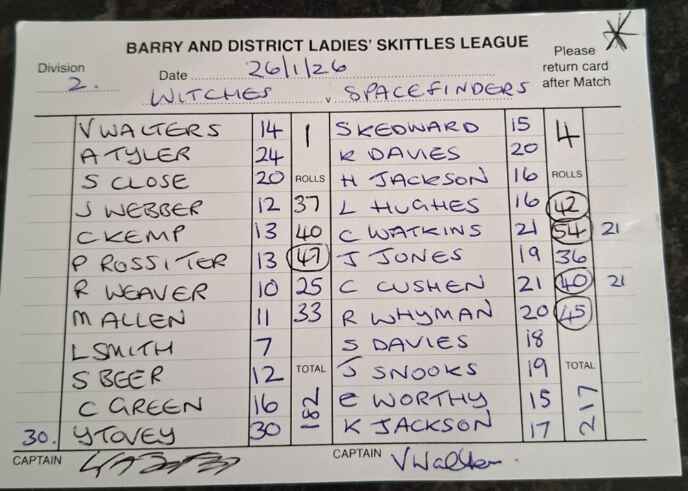 BARRY AND DISTRICT LADIES' SKITTLES LEAGUE
Division 2.
Date 26/1/26
Please return card after Match
WITCHES v SPACEFINDERS
V WALTERS 14 1 S KEDWARD 15 4
A TYLER 24 K DAVIES 20
S CLOSE 20 ROLLS H JACKSON 16 ROLLS
J WEBBER 12 37 L HUGHES 16 42
C KEMP 13 40 C WATKINS 21 54 21
P ROSSITER 13 47 J JONES 19 36
R WEAVER 10 25 C CUSHEN 21 40 21
M ALLEN 11 33 R WHYMAN 20 45
L SMITH 7 S DAVIES 18
S BEER 12 TOTAL J SNOOKS 19 TOTAL
C GREEN 16 182 E WORTHY 15 217
30. Y TOVEY 30 K JACKSON 17
CAPTAIN CAPTAIN V Walters